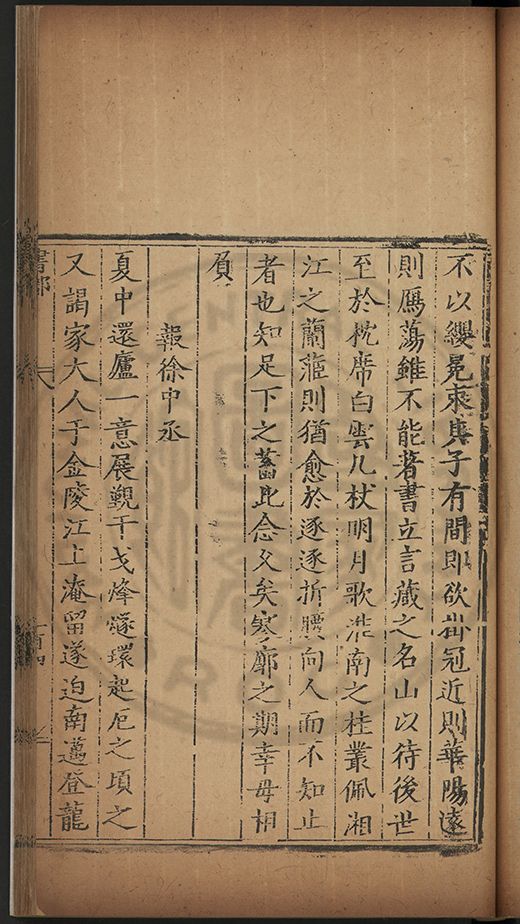 不以纓冕束庚子有間即欲掛冠近則華陽遠
則鴈蕩雖不能著書立言藏之名山以待後世
至於枕席白雲几杖明月歌淮南之桂叢佩湘
江之蘭茝則猶愈於逐逐折腰向人而不知止
者也知足下之蓄此念久矣寥廓之期幸毋相
負
報徐中丞
夏中還廬一意展覲干戈烽燧環起厄之頃之
又謁家大人于金陵江上淹留遂迫南邁登龍